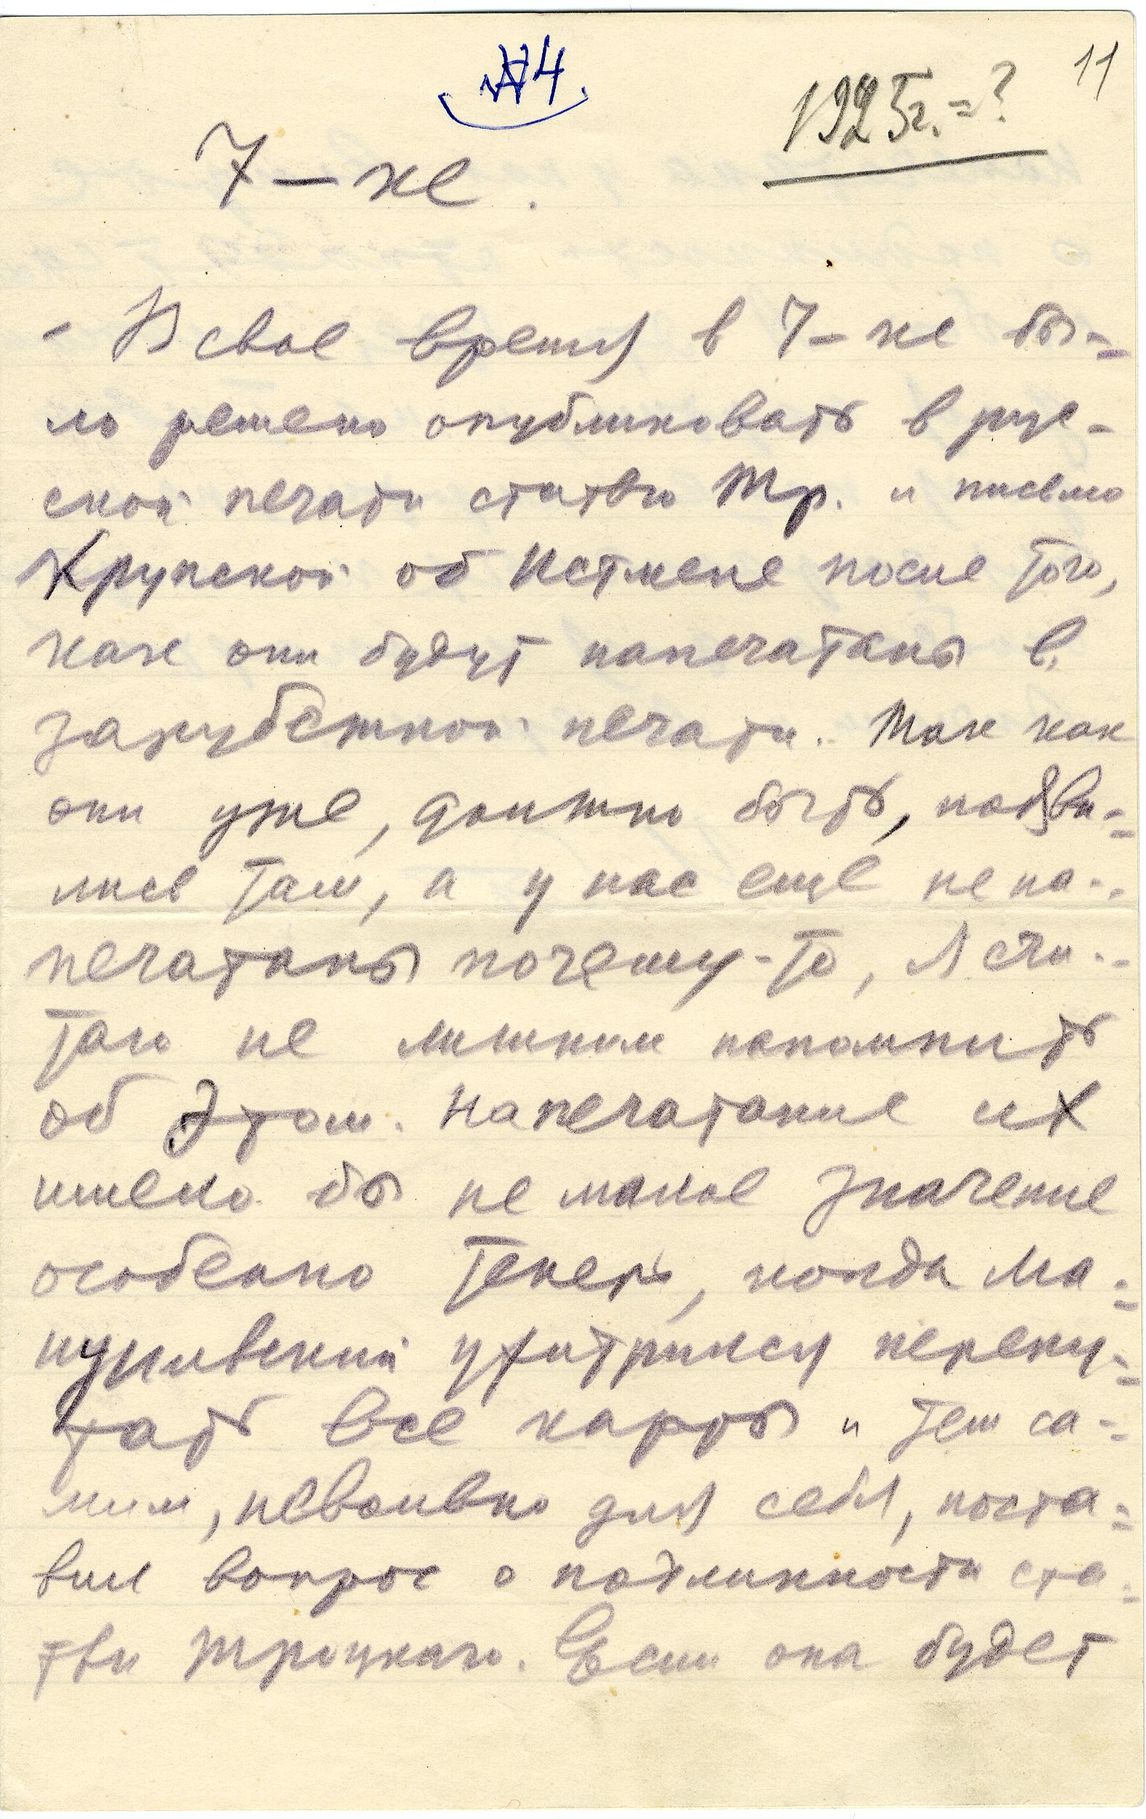 11
№4
1925г. = ?
7-ке.
- В свое время в 7-ке бы=
ло решено опубликовать в рус-
ской печати статью Тр. и письмо
Крупской об Истмене после того,
как они будут напечатаны в
зарубежной печати. Так как
они уже, должно быть, появи=
лись там, а у нас еще не на-
печатаны почему-то, я счи-
таю не лишним напомнить
об этом. Напечатание их
имело бы не малое значение
особенно теперь, когда Ма=
нуильский ухитрился перепу=
тать все карты и тем са=
мым, невольно для себя, поста=
вил вопрос о подлинности ста=
тьи Троцкаго. Если она будет